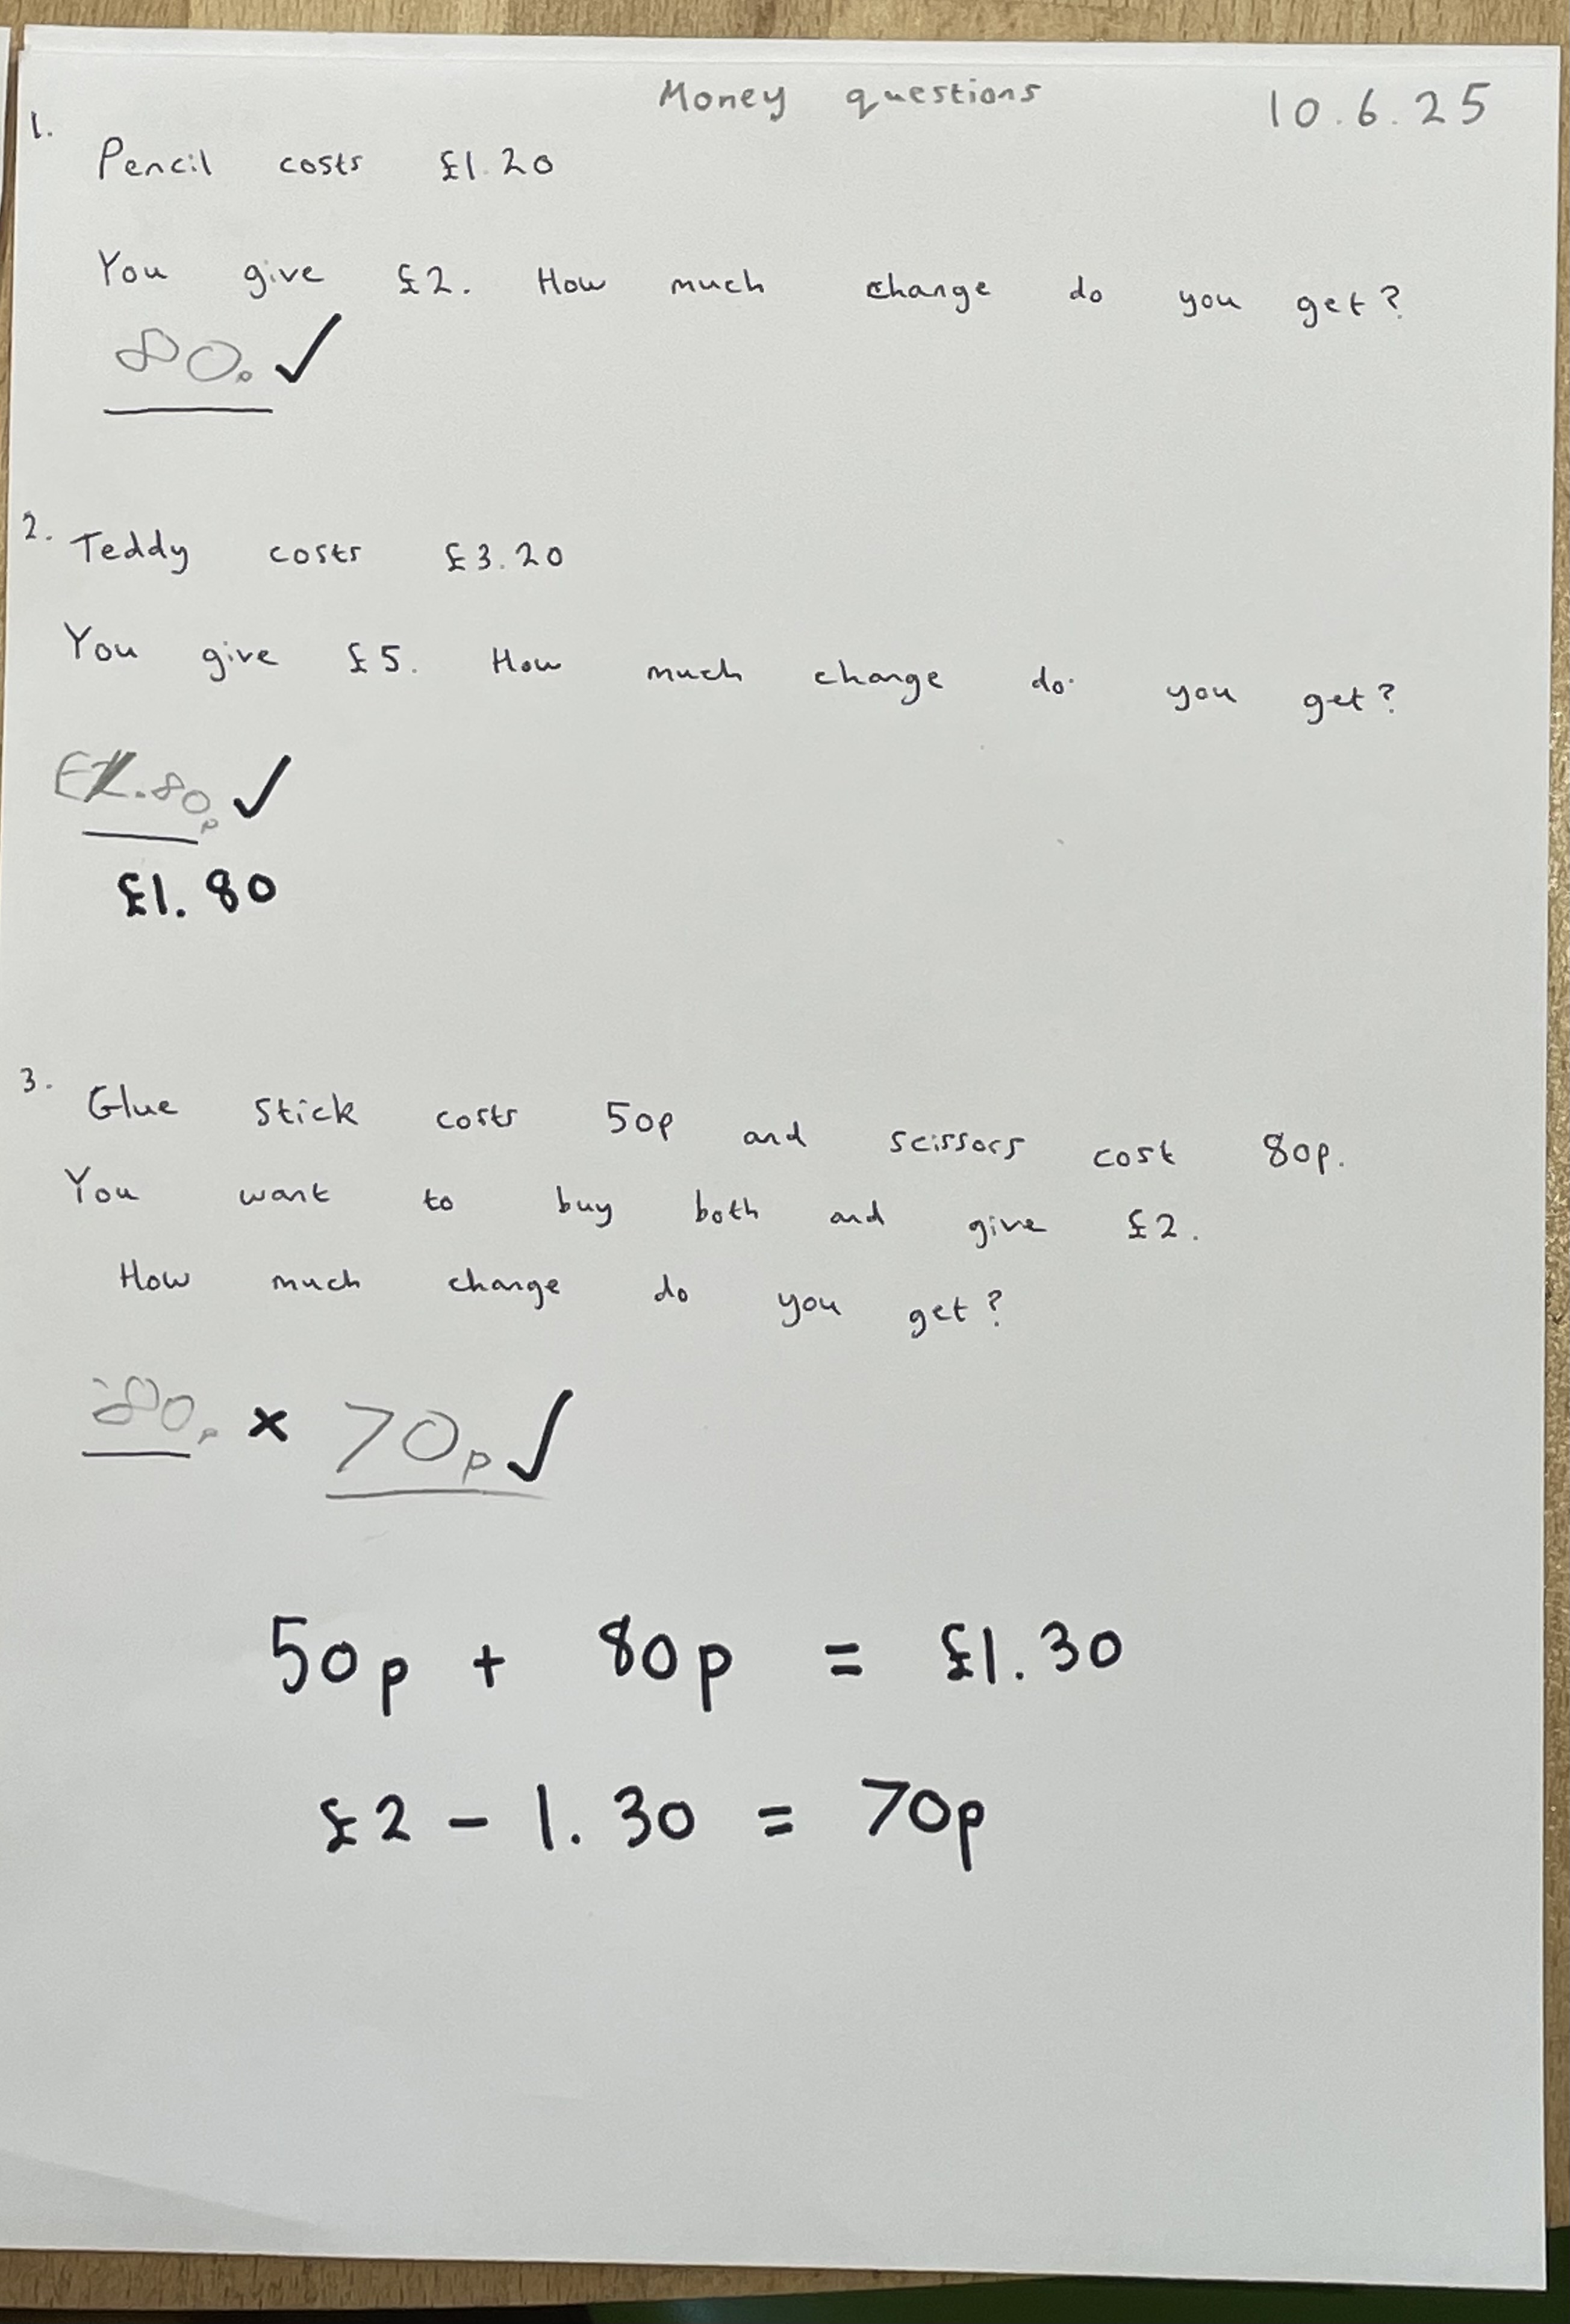 Money questions 10.6.25
1.
Pencil costs £1.20
You give £2. How much change do you get?
80p ✓
2.
Teddy costs £3.20
You give £5. How much change do you get?
.80p ✓
£1.80
3.
Glue stick costs 50p and scissors cost 80p.
You want to buy both and give £2.
How much change do you get?
80p × 70p ✓
50p + 80p = £1.30
£2 - 1.30 = 70p